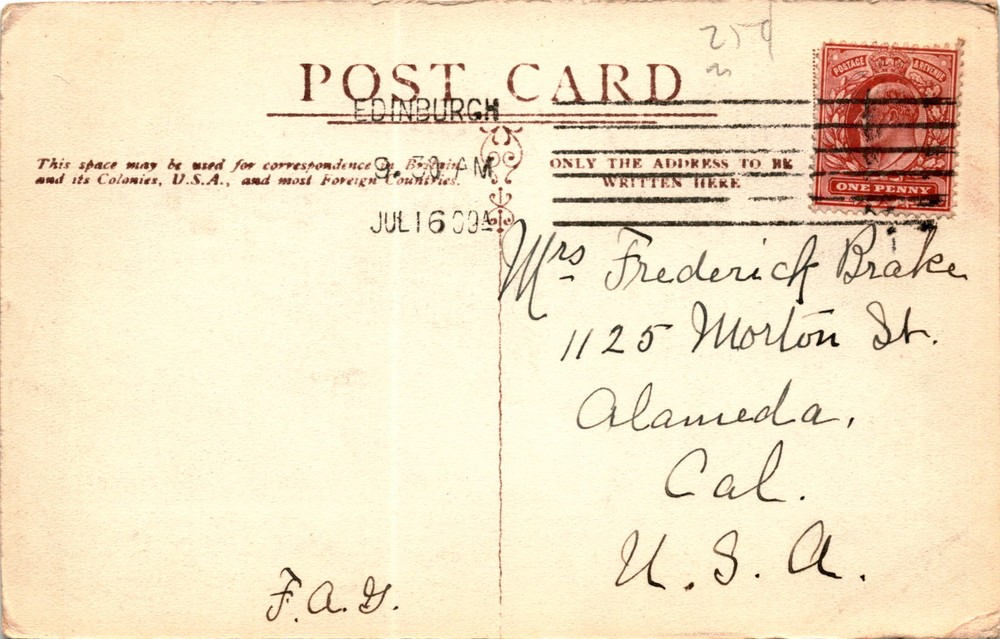 259
POST CARD
EDINBURGH
9. 30 AM
JUL 16 09
This space may be used for correspondence in Britain
and its Colonies, U.S.A., and most Foreign Countries.
ONLY THE ADDRESS TO BE
WRITTEN HERE
POSTAGE & REVENUE
ONE PENNY
Mrs Frederick Brake
1125 Morton St.
Alameda,
Cal.
U. S. A.
F. A. G.